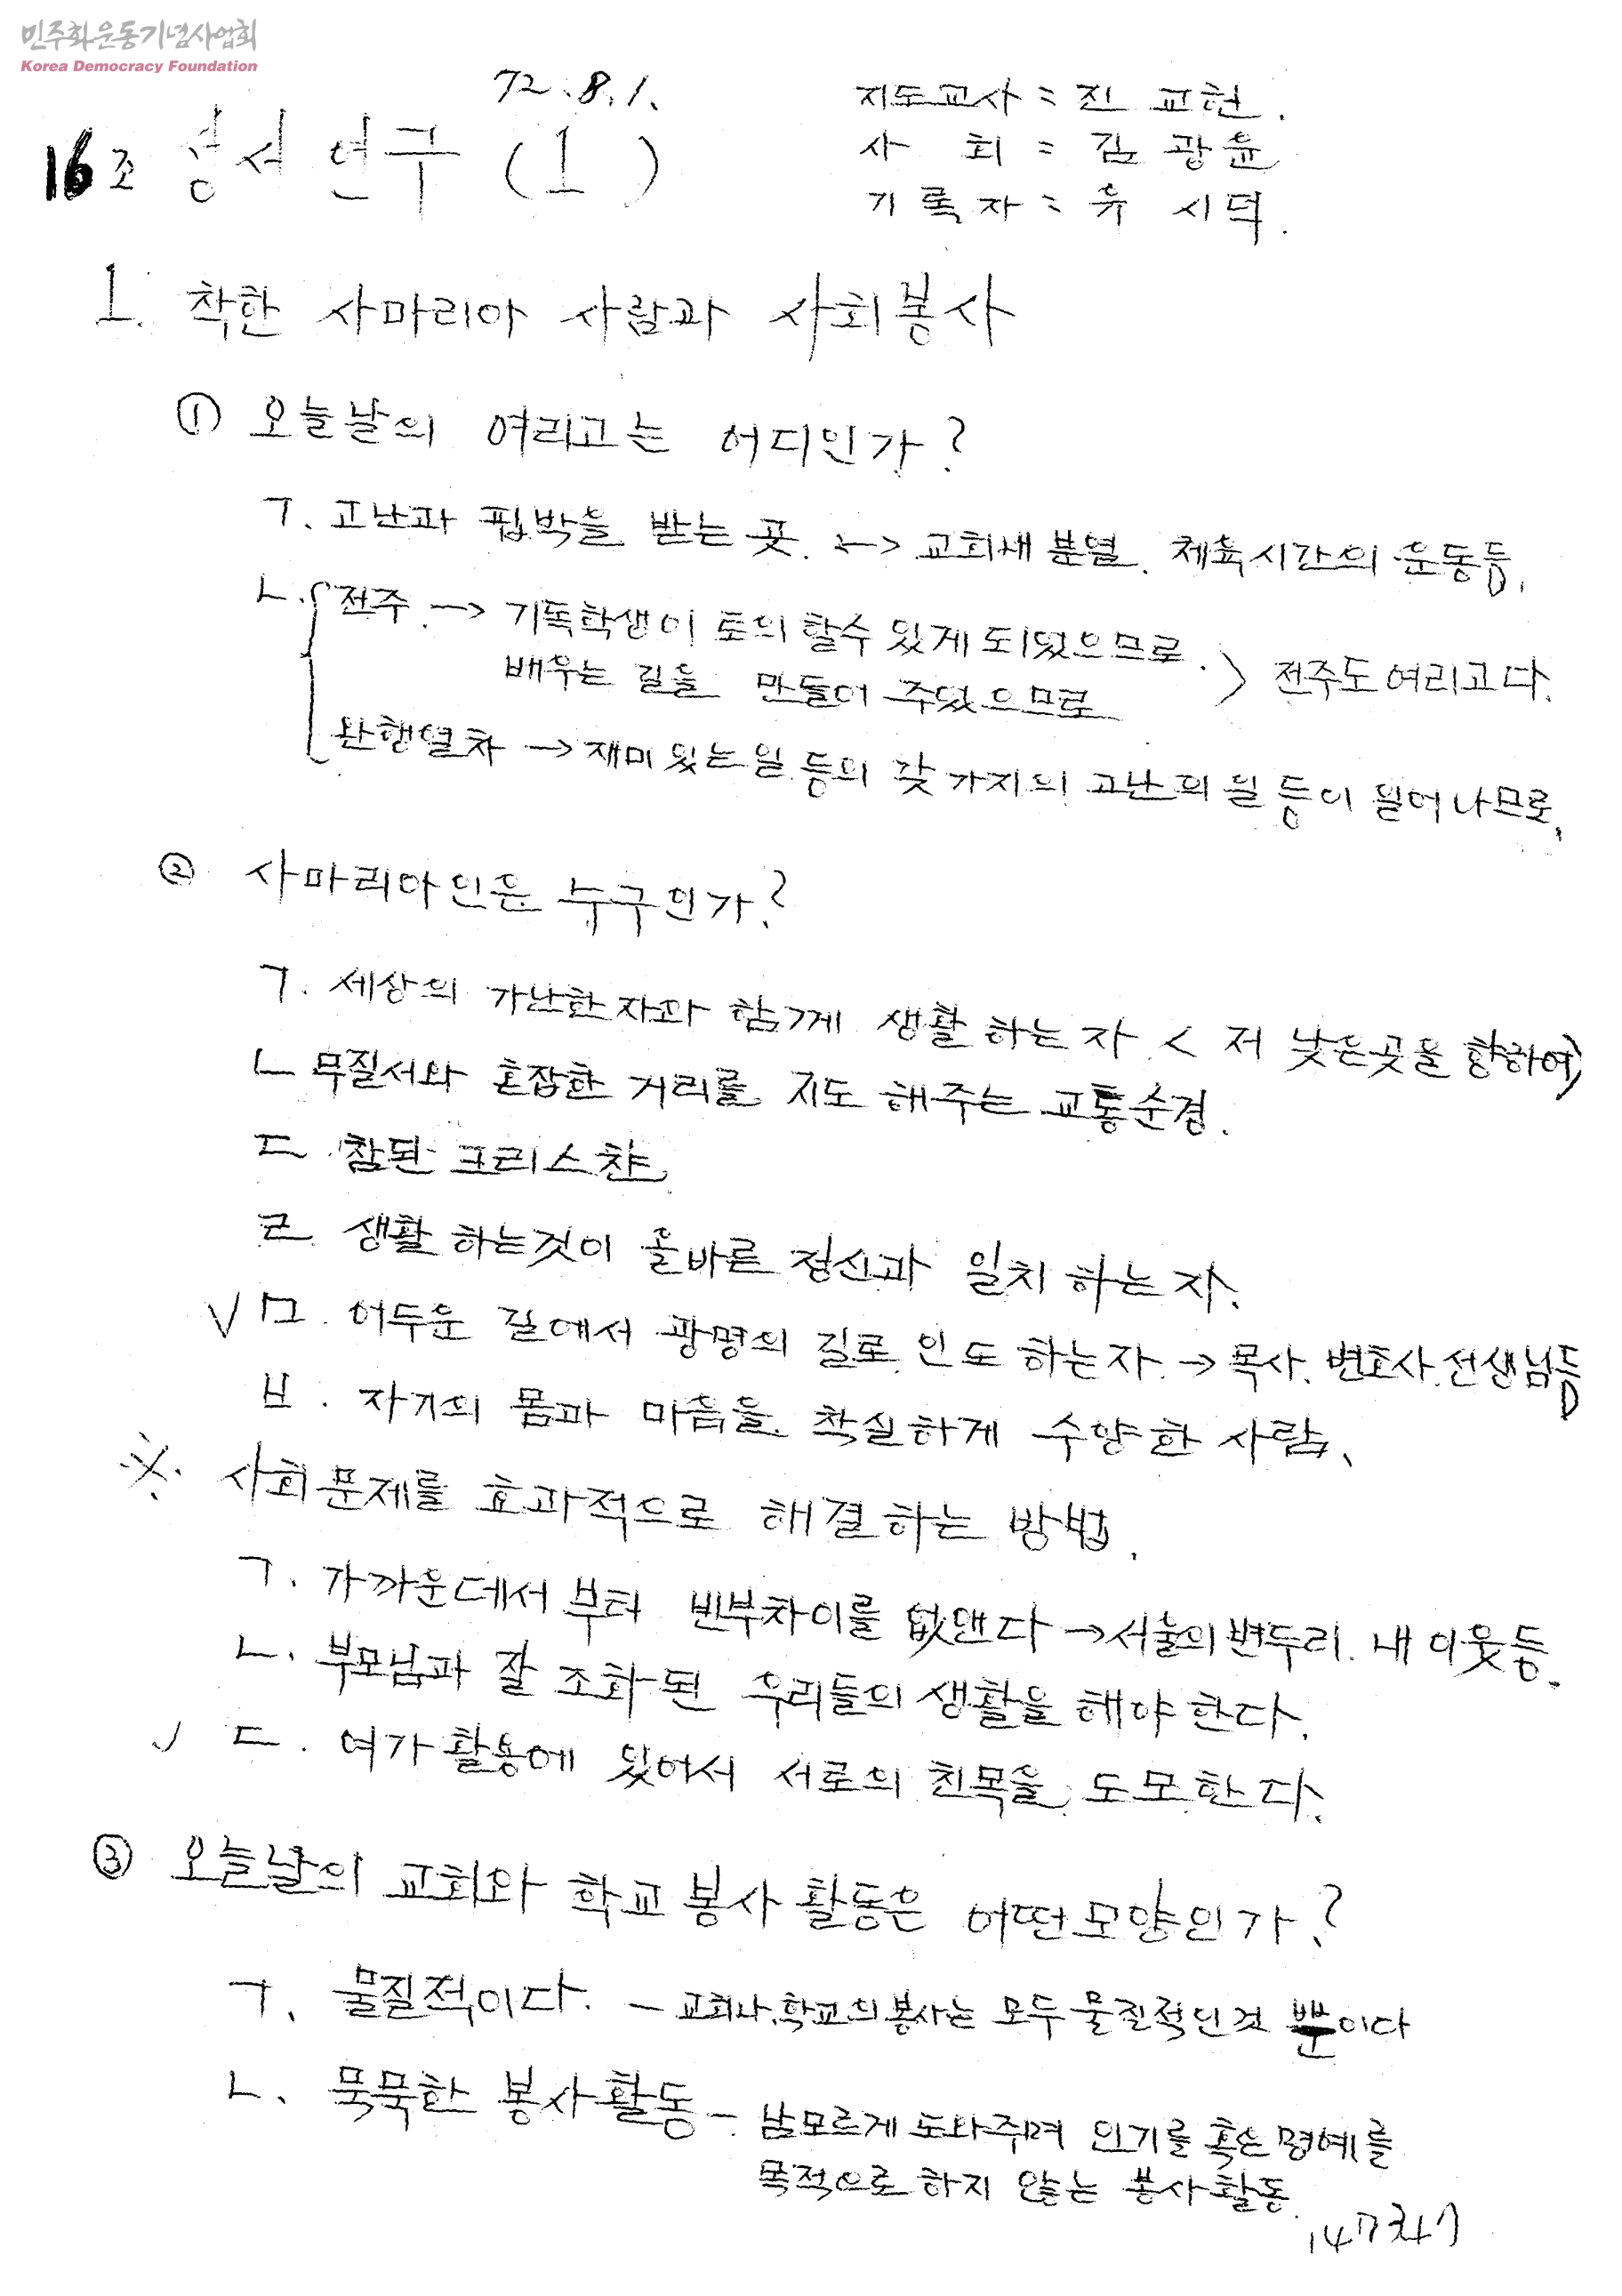 민주화운동기념사업회
Korea Democracy Foundation
72.8.1.
16조 성서연구 (1)
지도교사 = 진 교현.
사 회 = 김 광윤
기록자 = 유 시덕.
1. 착한 사마리아 사람과 사회봉사
① 오늘날의 여리고는 어디인가?
ㄱ. 고난과 핍박을 받는 곳. ←→ 교회내 분열. 체육시간의 운동등.
ㄴ. 전주. → 기독학생이 토의 할수 있게 되었으므로.
배우는 길을 만들어 주었으므로 > 전주도 여리고다.
완행열차 → 재미 있는일 등의 갖가지의 고난의 일 등이 일어나므로,
② 사마리아인은 누구인가?
ㄱ. 세상의 가난한 자와 함께 생활 하는 자 < 저 낮은곳을 향하여>
ㄴ 무질서와 혼잡한 거리를 지도 해주는 교통순경.
ㄷ. 참된 크리스챤
ㄹ. 생활 하는것이 올바른 정신과 일치 하는 자.
√ ㅁ. 어두운 길에서 광명의 길로 인도 하는자. → 목사. 변호사. 선생님등
ㅂ. 자기의 몸과 마음을 착실하게 수양한 사람.
※. 사회문제를 효과적으로 해결하는 방법.
ㄱ. 가까운데서 부터 빈부차이를 없앤다 → 서울의 변두리. 내 이웃등.
ㄴ. 부모님과 잘 조화된 우리들의 생활을 해야 한다.
√ ㄷ. 여가활용에 있어서 서로의 친목을 도모한다.
③ 오늘날의 교회와 학교 봉사 활동은 어떤모양인가?
ㄱ. 물질적이다. - 교회나.학교의 봉사는 모두 물질적인것 뿐이다
ㄴ. 묵묵한 봉사활동 - 남모르게 도와주며 인기를 혹은 명예를
목적으로 하지 않는 봉사활동.